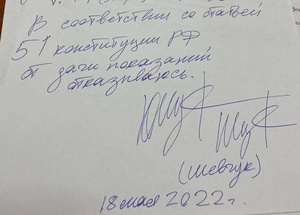 В соответствии со статьей
51 конституции РФ
от дачи показаний
отказываюсь.
(Шевчук)
18 мая 2022г.